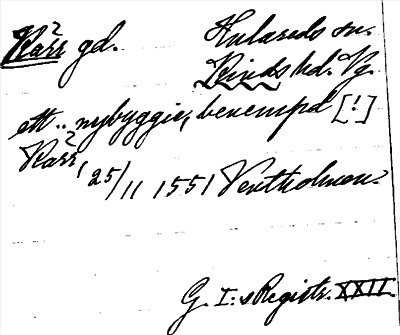 Kärr gd. Hulareds sn.
Kinds hd. Vg.
ett .. nybyggie, benempd [!]
Karr, 25/11 1551 Vextholmen.
G. I:s Registr. XXII.